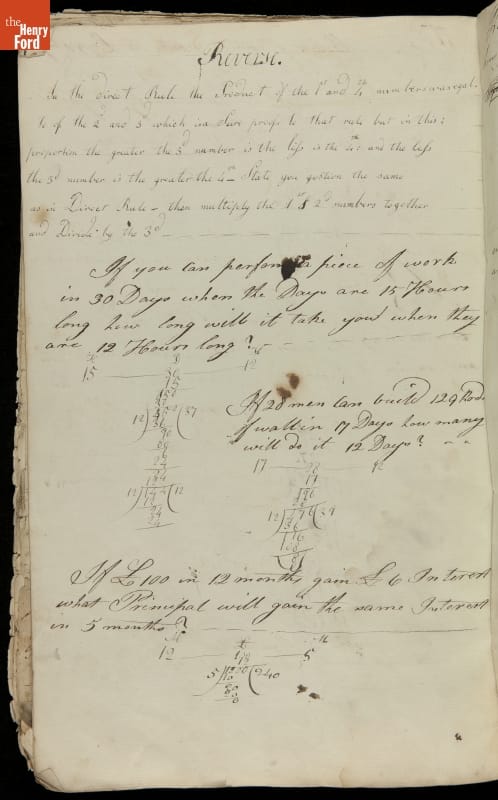 the
Henry
Ford
Reverse.
In the direct Rule the Product of the 1st and 4th numbers was egal
to of the 2d and 3d which is a Sure proof to that rule but in this
proportion the greater the 3d number is the less is the 4th and the less
the 3d number is the greater the 4th State you qustion the same
as in Direct Rule – then multiply the 1st & 2d numbers together
and Divide by the 3d
If you can perform a piece of work
in 30 Days when the Days are 15 Hours
long how long will it take you when they
are 12 Hours long?
15 30 12
15
150
12 ) ( 37
12 ) 144 ( 12
24
24
If 28 men can build 129 Rods
of wall in 17 Days how many
will do it 12 Days?
17 28
17
196
28
12 ) 476 ( 39
36
116
108
8
If £ 100 in 12 months gain £ 6 Interest
what Principal will gain the same Interest
in 5 months?
M £ M
12 5
5 ) ( 240